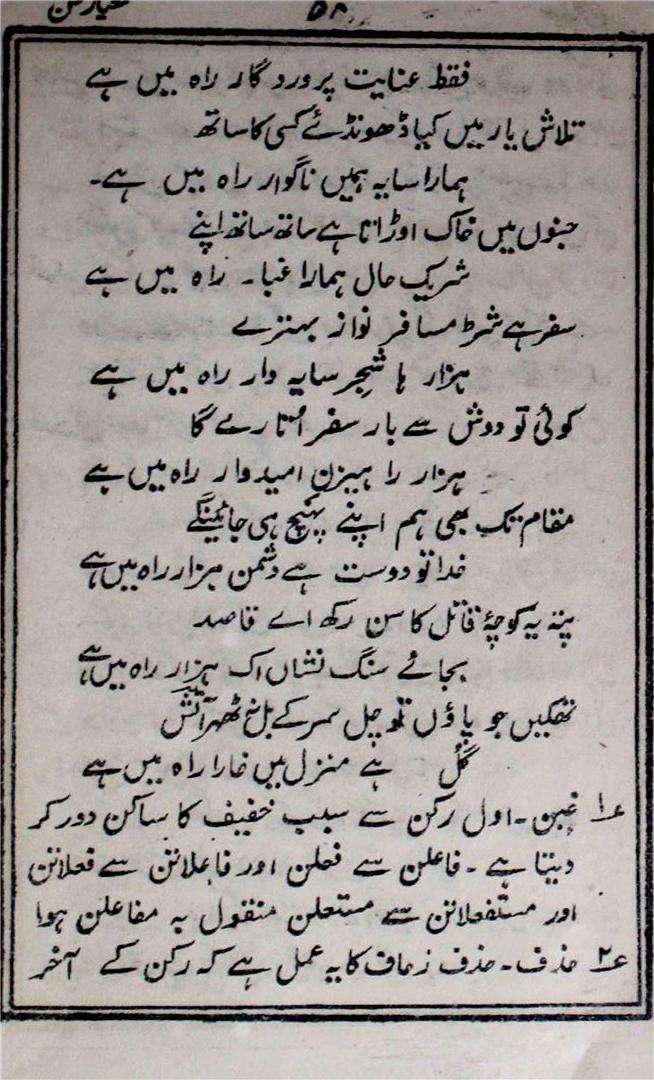 ۵۸
فقط عنایت پروردگار راہ میں ہے
تلاش یار میں کیا ڈھونڈئے کسی کا ساتھ
ہمارا سایہ ہمیں ناگوار راہ میں ہے۔
جنوں میں خاک اوڑاتا ہے ساتھ ساتھ اپنے
شریک حال ہمارا غبار راہ میں ہے
سفر ہے شرط مسافر نواز بہتیرے
ہزار ہا شجر سایہ دار راہ میں ہے
کوئی تو دوش سے بار سفر اُتارے گا
ہزار راہیزن امیدوار راہ میں ہے
مقام تک بھی ہم اپنے پہنچ ہی جائینگے
خدا تو دوست ہے دشمن ہزار راہ میں ہے
پتہ یہ کوچۂ قاتل کا سن رکھ اے قاصد
بجائے سنگ نشاں اک ہزار راہ میں ہے
تھکیں جو پاؤں تو چل سر کے بل نہ ٹھہر آتش
گُل ہے منزل میں خار راہ میں ہے
ع۱ خبن۔ اول رکن سے سبب خفیف کا ساکن دور کر
دیتا ہے۔ فاعلن سے فعلن اور فاعلاتن سے فعلاتن
اور مستفعلاتن سے مستعلن منقول بہ مفاعلن ہوا
ع۲ حذف۔ حذف زحاف کا یہ عمل ہے کہ رکن کے آخر